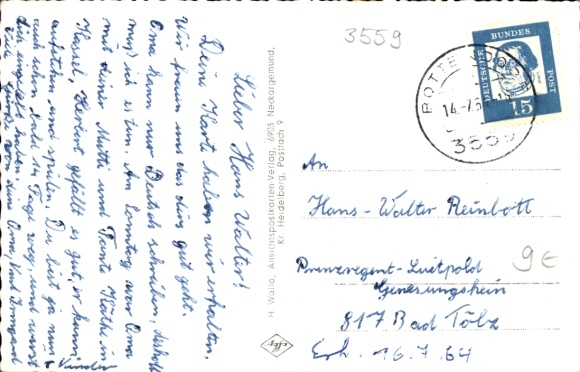 Lieber Hans Walter!
Deine Karte haben wir erhalten.
Wir freuen uns das dirs gut geht.
Oma kann nur Deutsch schreiben, deshalb
muß ich es tun. Am Sonntag war Oma
mit deiner Mutti und Tante Käthe in
Kassel, Herbert gefällt es gut, er kann
aufstehen und spielen. Du bist ja nun
auch schon bald 14 Tage weg, und wirst
dich eingelebt haben.
Oma Und Irmgard
H. Wallo, Ansichtspostkarten-Verlag, 6903 Neckargemünd,
Kr. Heidelberg, Postfach 9
3559
DEUTSCHE
BUNDES
POST
15
14.-7.
3559
An
Hans-Walter Reinbott
Prinzregent-Luitpold
Genesungsheim
817 Bad Tölz
Erh. 16.7.64
9€